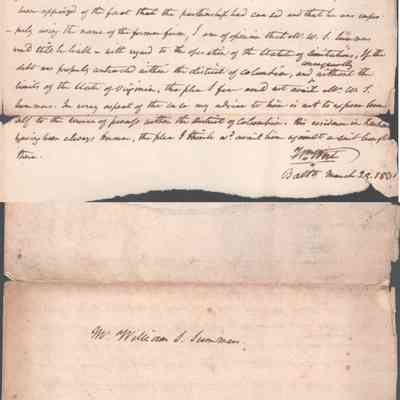 been apprized of the fact that the partnership had ceased and that he was impro-
-perly using the name of the former firm, I am of opinion that Mr. W. S. Summers
will be liable - with regard to the operation of the Statute of limitations, If the
debt was properly contracted within the district of Columbia, and consequently without the
limits of the State of Virginia, the plea I fear would not avail Mr. W. S.
Summers. In every aspect of the case my advice to him is not to expose him-
self to the service of process within the district of Columbia. His residence in
having been always known, the plea I think wd. avail him against a suit brought
there.
Wm Wirt
Balto March 29. 183
Mr. William S. Summers.